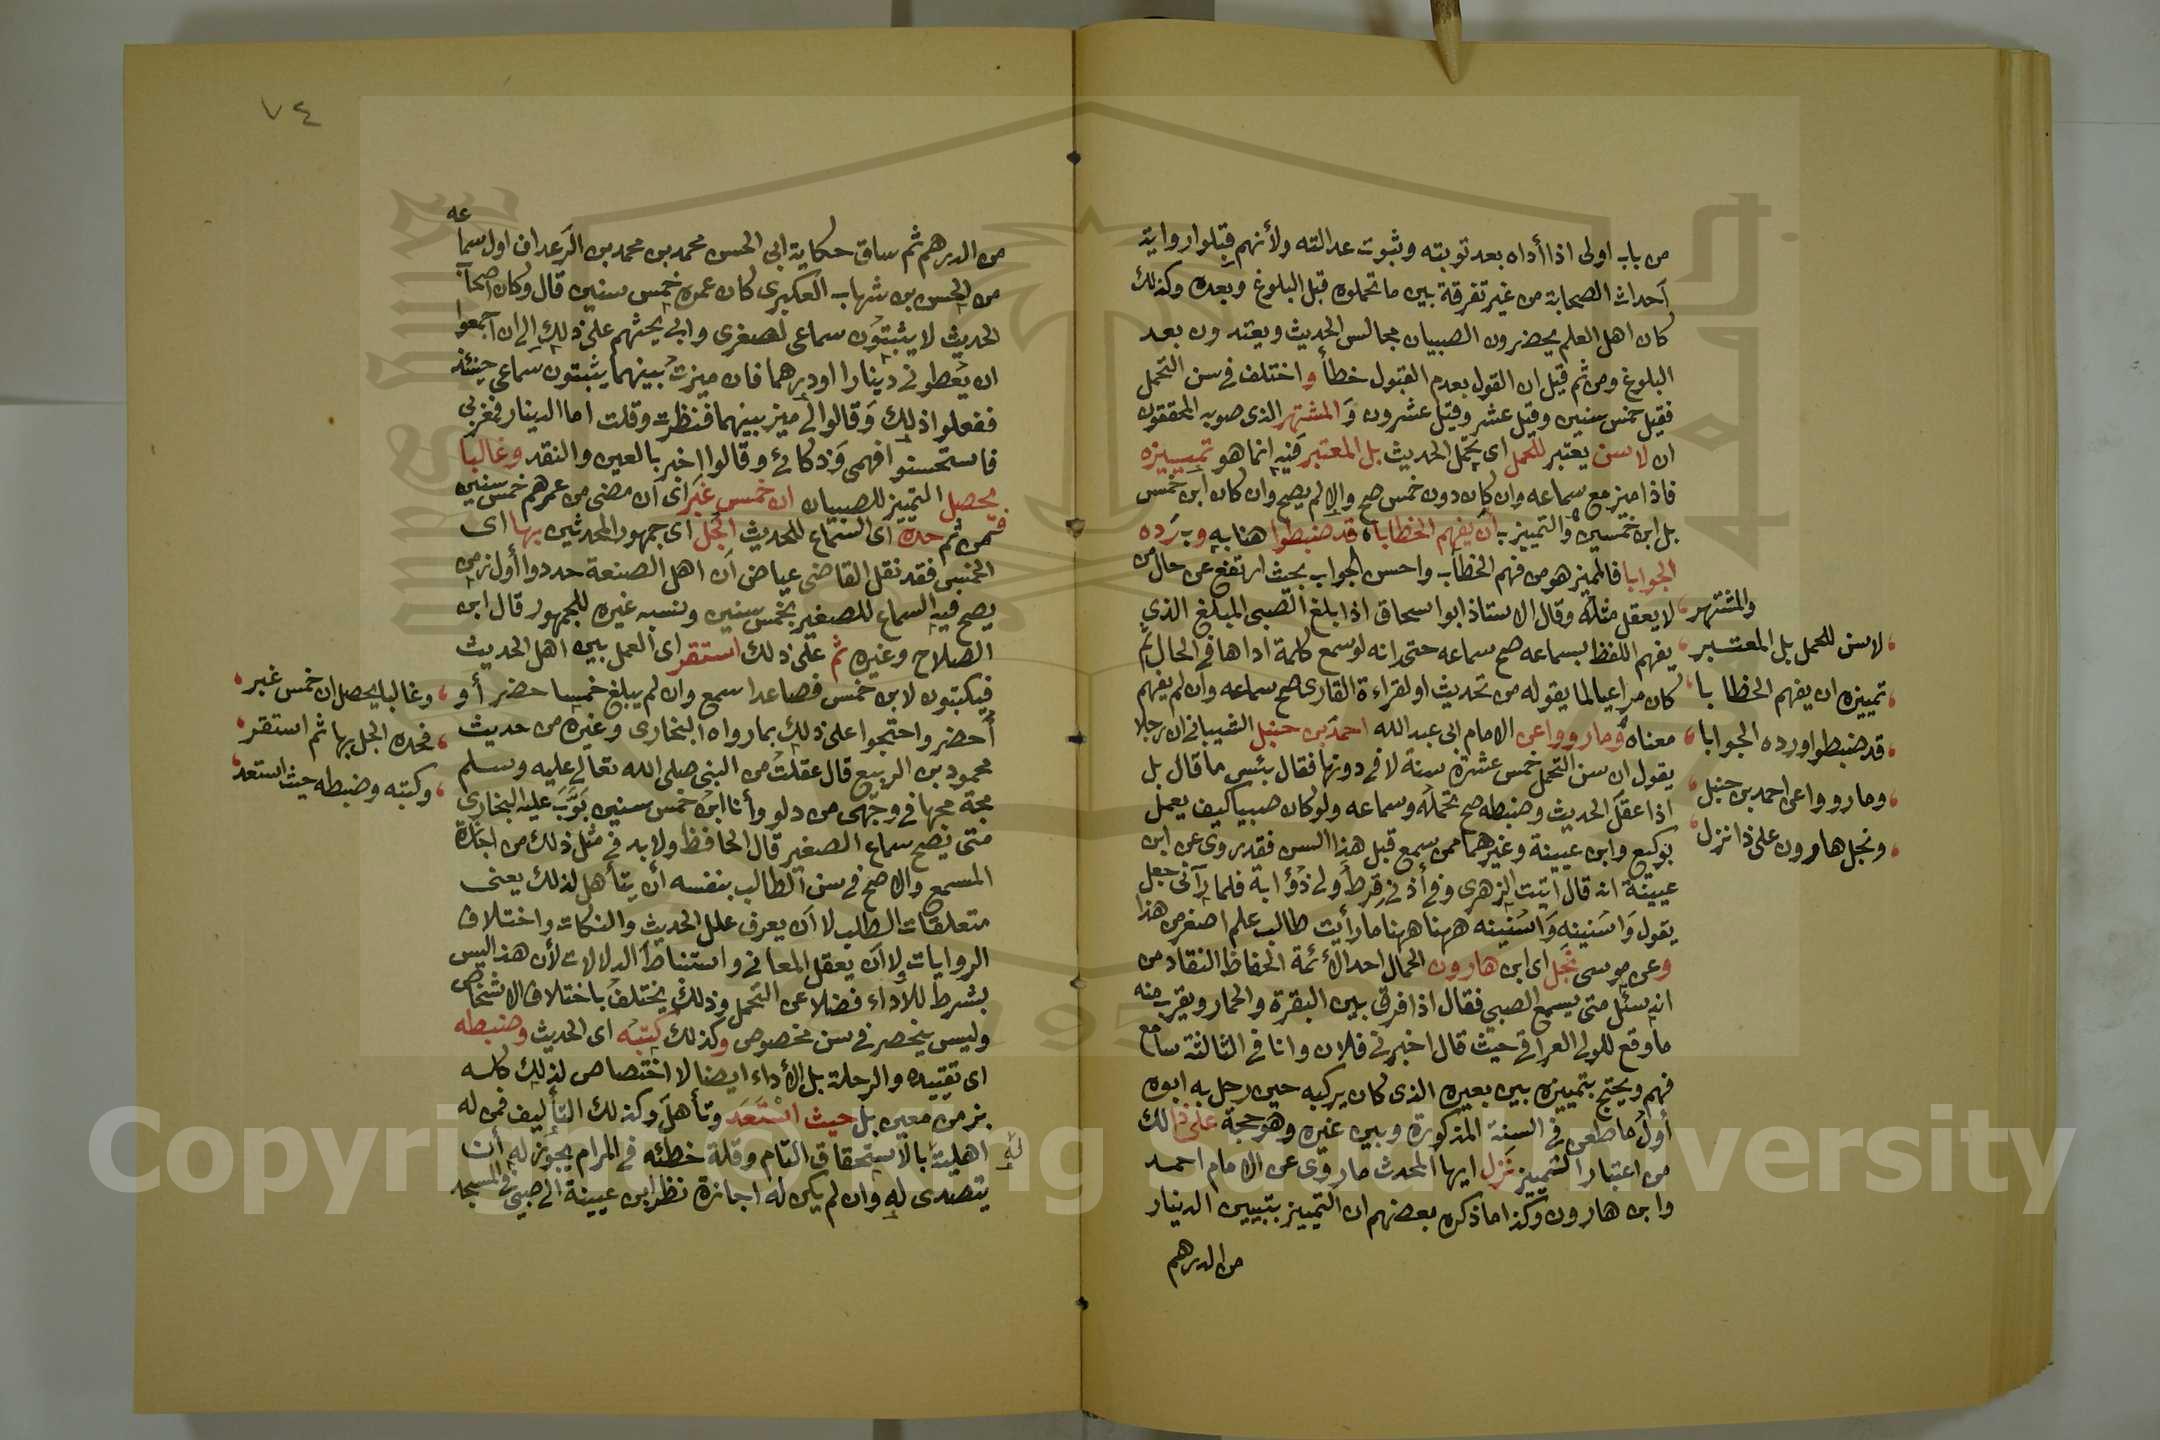 من باب اولى اذا أداه بعد توبته وثبوت عدالته ولأنهم قبلوا رواية
أحداث الصحابة من غير تفرقة بين ما تحملوه قبل البلوغ وبعده وكذلك
كان اهل العلم يحضرون الصبيان مجالس الحديث ويعتدون بعد
البلوغ ومن ثم قيل ان القول بعدم القبول خطأ واختلف في سن التحمل
فقيل خمس سنين وقيل عشر وقيل عشرون وَالمشتهر الذى صوبه المحققون
ان لا سن يعتبر للحمل اى تحمل الحديث بل المعتبر فيه انما هو تمييزه
فاذا ميز مع سماعه وان كان دون خمس صح والا لم يصح وان كان ابن خمس
بل ابن خمسين والتمييز بـ أن يفهم الخطابا قد ضبطوا هنا به وبـ رَده
الجوابا فالمميز هو من فهم الخطاب واحسن الجواب بحيث ارتفع عن حال من
لا يعقل مثله وقال الاستاذ ابو اسحاق اذا بلغ الصبى المبلغ الذي
يفهم اللفظ بسماعه صح سماعه حتى انه لو سمع كلمة اداها في الحال ثم
كان مراعيا لما يقوله من تحديث او لقراءة القارى صح سماعه وان لم يفهم
معناه وَما رووا عن الامام ابى عبد الله احمد بن حنبل الشيبانى ان رجلا
يقول ان سن التحمل خمس عشرة سنة لا في دونها فقال بئس ما قال بل
اذا عقل الحديث وضبطه صح تحمله وسماعه ولو كان صبيا كيف يعمل
بوكيع وابن عيينة وغيرهما ممن سمع قبل هذا السن فقد روى عن ابن
عيينة انه قال اتيت الزهرى وفي أذني قرط ولى ذؤابة فلما رآنى جعل
يقول وَاسُنينه وَاسُنينه ههنا ههنا ما رأيت طالب علم اصغر من هذا
وعن موسى نجل اى ابن هارون الحمال احد الأئمة الحفاظ النقاد من
انه سئل متى يسمع الصبى فقال اذا فرق بين البقرة والحمار ويقرب منه
ما وقع للولى العراقي حيث قال اخبرني فلان وانا في الثالثة سامع
فهم ويحتج بتمييزه بين بعيره الذى كان يركبه حين رحل به ابوه
أول ما طعن في السنة المذكورة وبين غيره وهو حجة على ذالك
من اعتبار التمييز نَزل ايها المحدث ما روى عن الامام احمد
وابن هارون وكذا ما ذكره بعضهم ان التمييز بتبيين الدينار
من الدرهم
والمشتهر
لا سن للحمل بل المعتبر
تمييزه ان يفهم الخطابا
قد ضبطوا ورده الجوابا
وما رووا عن احمد بن حنبل
ونجل هارون على ذا نزل
٧٤
من الدرهم ثم ساق حكاية ابى الحسن محمد بن محمد بن الزعدان اول سماعه
من الحسن بن شهاب العكبرى كان عمره خمس سنين قال وكان اصحاب
الحديث لا يثبتون سماعى لصغرى وابى يحثهم على ذلك الى ان اجمعوا
ان يعطوني دينارا او درهما فان ميزت بينهما يثبتون سماعى حينئذ
ففعلوا ذلك وَقالوا لي ميز بينهما فنظرت وقلت اما الدينار فمغربى
فاستحسنوا فهمى وَذكائى وقالوا اخبر بالعين والنقد وغالبا
يحصل التمييز للصبيان ان خمس غبر اى ان مضى من عمرهم خمس سنين
فمن ثم حده اى السماع للحديث الجُل اى جمهور المحدثين بها اى
الخمس فقد نقل القاضى عياض ان اهل الصنعة حددوا أول زمن
يصح فيه السماع للصغير بخمس سنين ونسبه غيره للجمهور قال ابن
الصلاح وغيره ثم على ذلك استقر اى العمل بين اهل الحديث
فيكتبون لابن خمس فصاعدا سمع وان لم يبلغ خمسا حضر أو
أحضر واحتجوا على ذلك بما رواه البخارى وغيره من حديث
محمود بن الربيع قال عقلت من النبى صلى الله تعالى عليه وسلم
مجة مجها في وجهى من دلو وأنا ابن خمس سنين بَوَّبَ عليه البخارى
متى يصح سماع الصغير قال الحافظ ولا بد في مثل ذلك من اجازة
المسمع والاصح في سن الطالب بنفسه أن يتأهل لذلك يعنى
متعلقات الطلب لا أن يعرف علل الحديث والنكات واختلاف
الروايات ولا ان يعقل المعاني واستنباط الدلالات لأن هذا ليس
بشرط للاداء فضلا عن التحمل وذلك يختلف باختلاف الاشخاص
وليس ينحصر في سن مخصوص وكذلك كَتبُه اى الحديث وضبطه
اى تقييده والرحلة بل الأداء ايضا لا اختصاص لذلك كله
بزمن معين بل حيث اسْتَعد وتأهل وكذلك التأليف فمن له
اهلية بالاستحقاق التام وقلة خطئه في المرام يجوز له أن
يتصدى له وان لم يكن له اجازة نظر ابن عيينة الى صبي في المسجد
وغالبا يحصل ان خمس غبر
فحده الجل بها ثم استقر
وكتبه وضبطه حيث استعد
Copyright © King Saud University